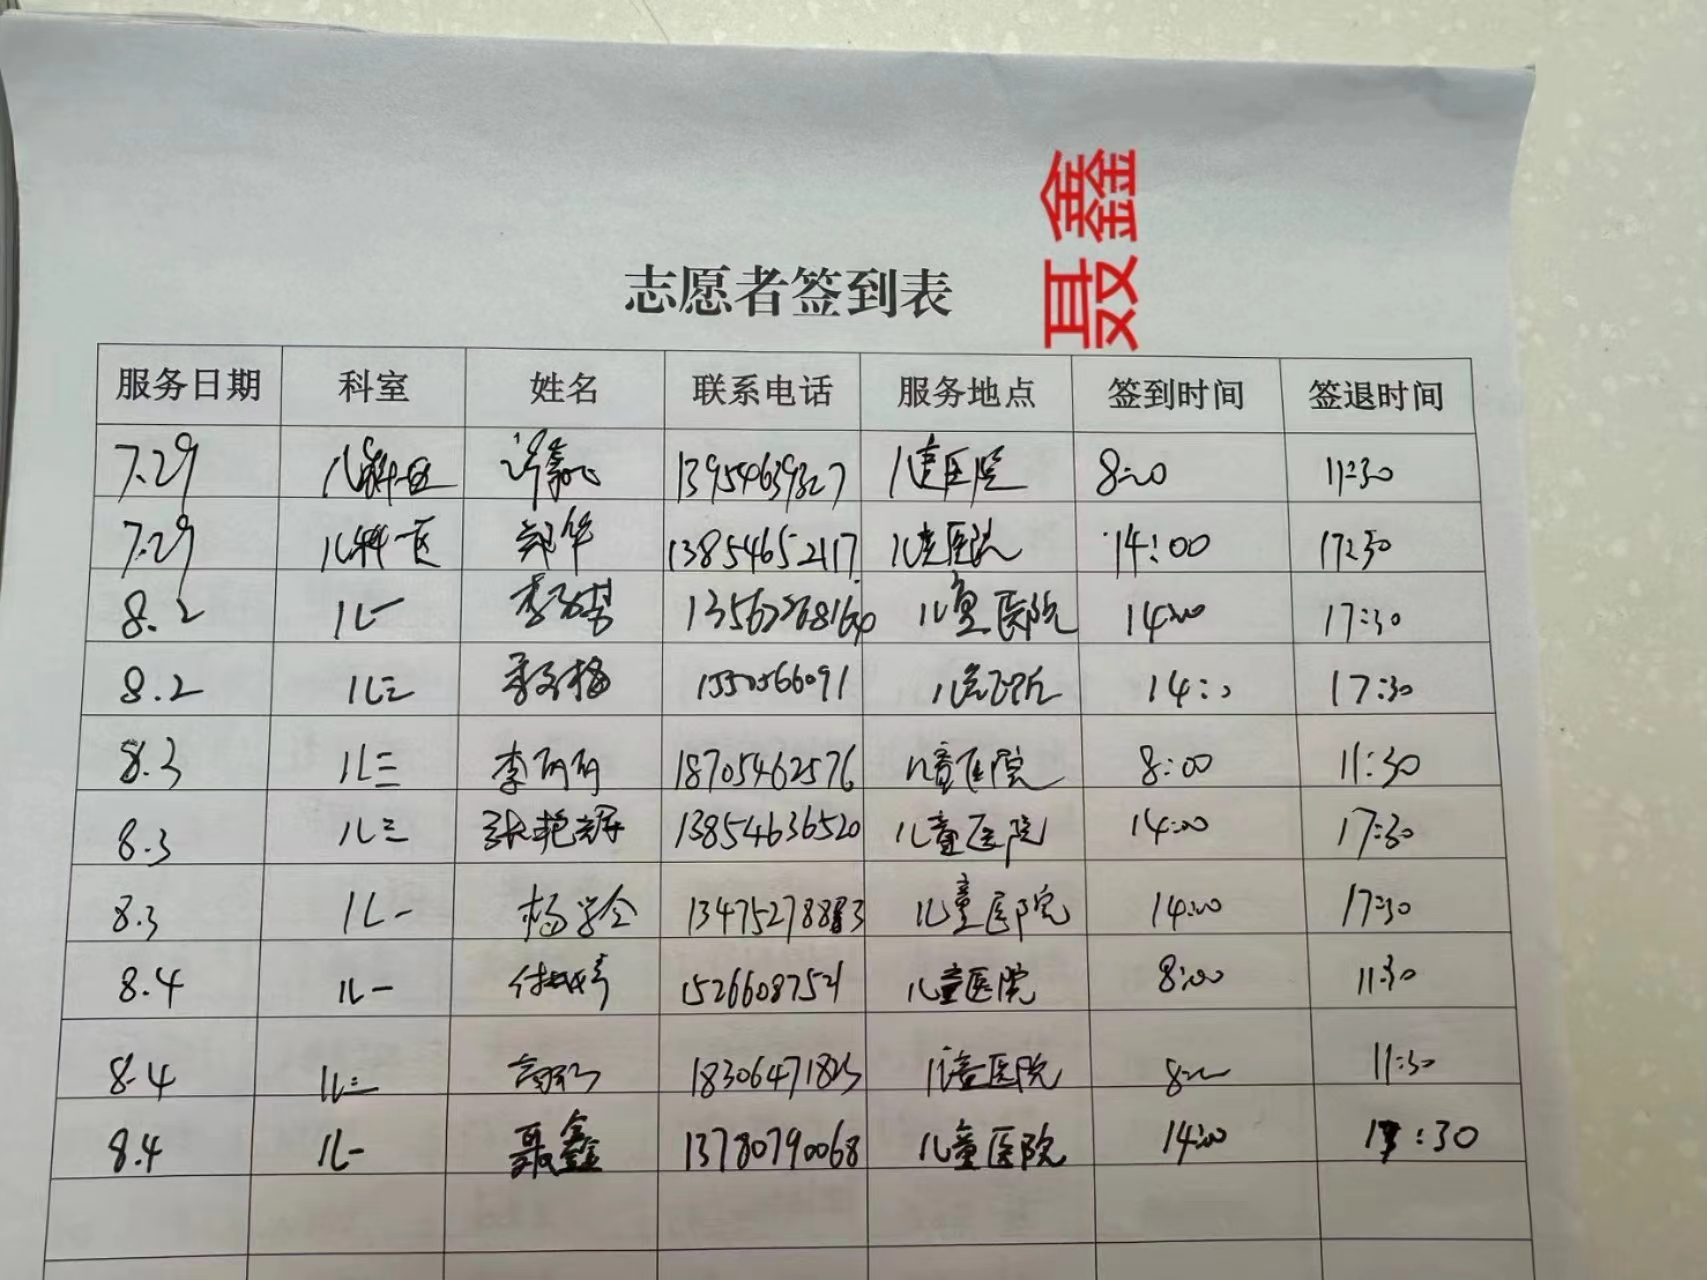 聂鑫
志愿者签到表
服务日期 科室 姓名 联系电话 服务地点 签到时间 签退时间
7.29 儿科一区 13954639327 儿童医院 8:00 11:30
7.29 儿科一区 郑华 13854652117 儿童医院 14:00 17:30
8.2 儿一 儿童医院 14:00 17:30
8.2 儿三 李冬梅 儿童医院 14:00 17:30
8.3 儿三 李丽丽 18705462576 儿童医院 8:00 11:30
8.3 儿三 张艳辉 13854636520 儿童医院 14:00 17:30
8.3 儿一 杨学会 13475278883 儿童医院 14:00 17:30
8.4 儿一 儿童医院 8:00 11:30
8.4 儿三 儿童医院 8:00 11:30
8.4 儿一 聂鑫 13780790068 儿童医院 14:00 17:30